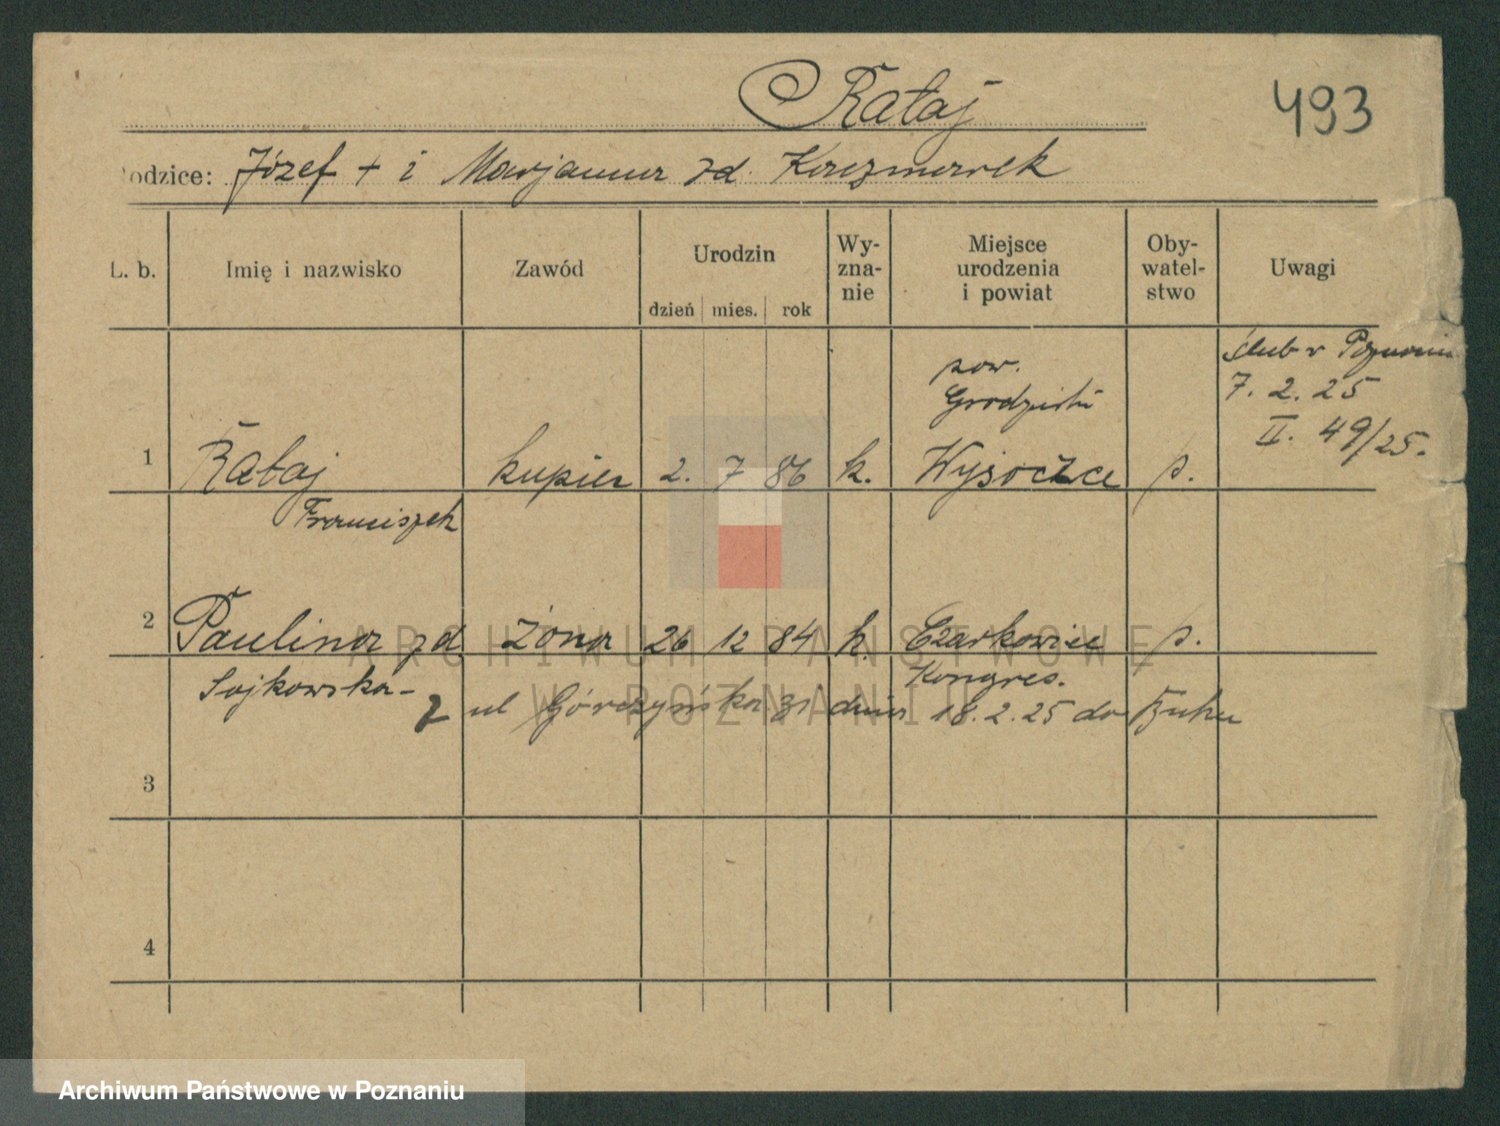 Rataj
493
odzice: Józef + i Marjanna zd. Kaczmarek
L. b.
Imię i nazwisko
Zawód
Urodzin
dzień mies. rok
Wy-
zna-
nie
Miejsce
urodzenia
i powiat
Oby-
watel-
stwo
Uwagi
ślub w Poznaniu
7. 2. 25
II. 49/25.
pow.
Grodziski
1 Rataj kupiec 2. 7 86 k. Wysoczce p.
Franciszek
2 Paulina zd żona 26 12 84 k. Czarkowice p.
Sojkowska- Kongres.
z ul Górczyńska 31 dnia 18.2.25 do Buku
3
4
ARCHIWUM PAŃSTWOWE
W POZNANIU
Archiwum Państwowe w Poznaniu